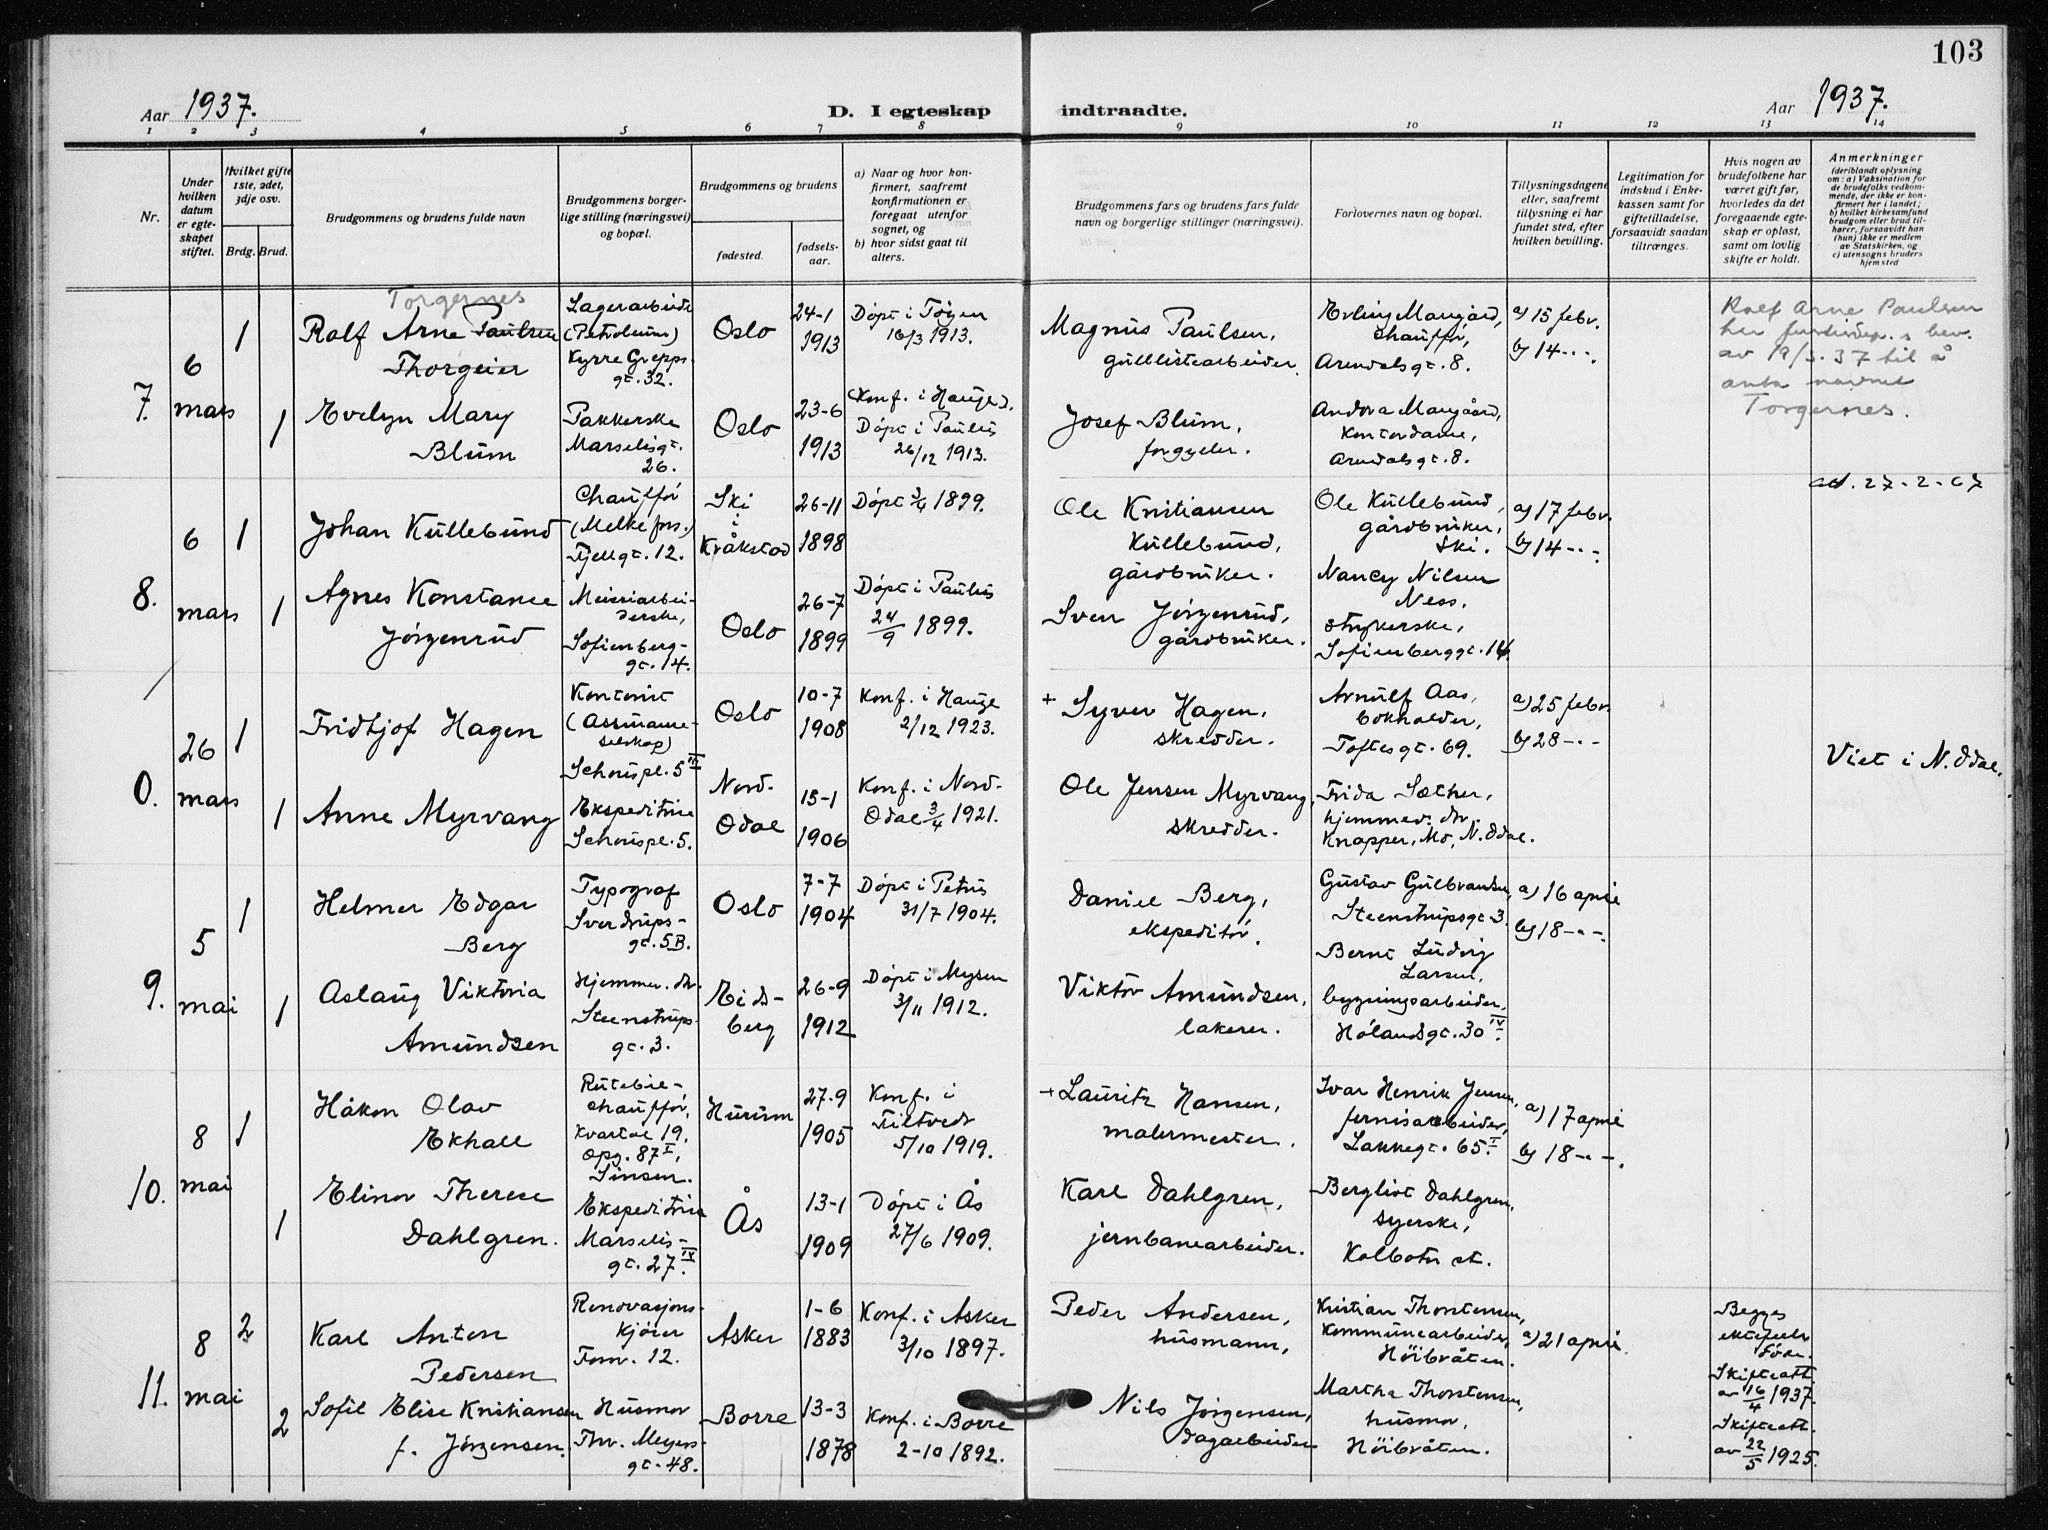 103
Aar 1937.
D. I egteskap indtraadte.
Aar 1937.
1 2 3 4 5 6 7 8 9 10 11 12 13 14
Nr.
Under hvilken datum er egteskapet stiftet.
Hvilket gifte 1ste, 2det, 3dje osv.
Brdg. Brud.
Brudgommens og brudens fulde navn
Brudgommens og brudens borgerlige stilling (næringsvei) og bopæl.
Brudgommens og brudens
fødested.
fødselsaar.
a) Naar og hvor konfirmert, saafremt konfirmationen er foregaat utenfor sognet, og
b) hvor sidst gaat til alters.
Brudgommens fars og brudens fars fulde navn og borgerlige stillinger (næringsvei).
Forlovernes navn og bopæl.
Tillysningsdagene eller, saafremt tillysning ei har fundet sted, efter hvilken bevilling.
Legitimation for indskud i Enkekassen samt for giftetilladelse, forsaavidt saadan tiltrænges.
Hvis nogen av brudefolkene har været gift før, hvorledes da det foregaaende egteskap er opløst, samt om lovlig skifte er holdt.
Anmerkninger (deriblandt oplysning om: a) Vaksination for de brudefolks vedkommende, der ikke er konfirmert her i landet; b) hvilket kirkesamfund brudgom eller brud tilhører, forsaavidt han (hun) ikke er medlem av Statskirken, og c) utensogns bruders hjemsted
7.
6 mars
1
Torgernes
Ralf Arne Paulsen
Thorgeier
Lagerarbeide
(Petroleum)
Kyrre Grepps-
gt. 32.
Oslo
24-1
1913
Døpt i Tøyen
16/3 1913.
Magnus Paulsen,
gullistearbeider.
Erling Maugård,
chauffør,
Arendalsgt. 8.
a) 15 febr.
b) 14 - . - .
Ralf Arne Paulsen
av 19/3. 37 til å
anta navnet
Torgernes.
1
Evelyn Mary
Blum
Pakkerske
Marselisgt.
26.
Oslo
23-6
1913
Konf. i Hauge.
Døpt i Paulus
26/12 1913.
Josef Blum,
forgyller.
Andora Maugård,
Kontordame,
Arendalsgt. 8.
8.
6 mars
1
Johan Kullebund
Chauffør
(Melkefors.)
Fjellgt. 12.
Ski
i
Kråkstad
26-11
1898
Døpt 3/4 1899.
Ole Kristiansen
Kullebund,
gårdbruker.
Ole Kullebund,
gårdbruker,
Ski.
a) 17 febr.
b) 14 - . -
27-2-67
1
Agnes Konstanse
Jørgenrud
Meieriarbei-
derske,
Sofienberg-
gt. 14.
Oslo
26-7
1899
Døpt i Paulus
24/9 1899.
Sven Jørgenrud,
gårdbruker.
Nancy Nilsen
Ness,
strykerske,
Sofienberggt. 14.
0.
26 mars
1
Fridtjof Hagen
Kontorist
(Assuranse-
selskap)
Schouspl. 5 IV
Oslo
10-7
1908
Konf. i Hauge
2/12 1923.
+ Syver Hagen,
skredder.
Arnulf Aas,
bokholder,
Toftesgt. 69.
a) 25 febr.
b) 28 - . -
Viet i N. Odal.
1
Anne Myrvang
Ekspeditrise
Schouspl. 5.
Nord-
Odal
15-1
1906
Konf. i Nord-
Odal 3/4 1921.
Ole Jensen Myrvang,
skredder.
Frida Sæther,
hjemmev. dtr.
Knapper, Mo, N. Odal.
9.
5 mai
1
Helmer Edgar
Berg
Typograf
Sverdrups-
gt. 5B.
Oslo
7-7
1904
Døpt i Petrus
31/7 1904.
Daniel Berg,
ekspeditør.
Gustav Gulbrandsen,
Steenstrupsgt. 3.
a) 16 april
b) 18 - . - .
1
Aslaug Viktoria
Amundsen
Hjemmev. dtr.
Steenstrups-
gt. 3.
Eids-
berg
26-9
1912
Døpt i Mysen
3/11 1912.
Viktor Amundsen,
lakerer.
Bernt Ludvig
Larsen,
bygningsarbeider,
Hølandsgt. 30 IV.
10.
8 mai
1
Håkon Olav
Ekhall
Rutebil-
chauffør,
Kvartal 19,
Opg. 87 I,
Sinsen.
Hurum
27-9
1905
Konf. i
Filtvedt
5/10 1919.
+ Lauritz Hansen,
malermester.
Ivar Henrik Jensen,
fernisarbeider,
Lakkegt. 65 I.
a) 17 april
b) 18 - . - .
1
Elinor Therese
Dahlgren.
Ekspeditrise
Marselis-
gt. 27 IV.
Ås
13-1
1909
Døpt i Ås
27/6 1909.
Karl Dahlgren,
jernbanearbeider.
Bergliot Dahlgren,
syerske,
Kolbotn st.
11.
8 mai
2
Karl Anton
Pedersen
Renovasjons-
kjører
Torv. 12.
Asker
1-6
1883
Konf. i Asker
3/10 1897.
Peder Andersen,
husmann,
Kristian Thorstensen,
Kommunearbeider,
Høibråten.
a) 21 april.
Begges
ektefeller
døde.
Skifteatt.
av 16/4 1937.
2
Sofie Elise Kristiansen
f. Jørgensen.
Husmor
Thv. Meyers-
gt. 48.
Borre
13-3
1878
Konf. i Borre
2-10 1892.
Nils Jørgensen,
dagarbeider
Martha Thorstensen,
husmor,
Høibråten.
Skifteatt.
av 22/5 1925.